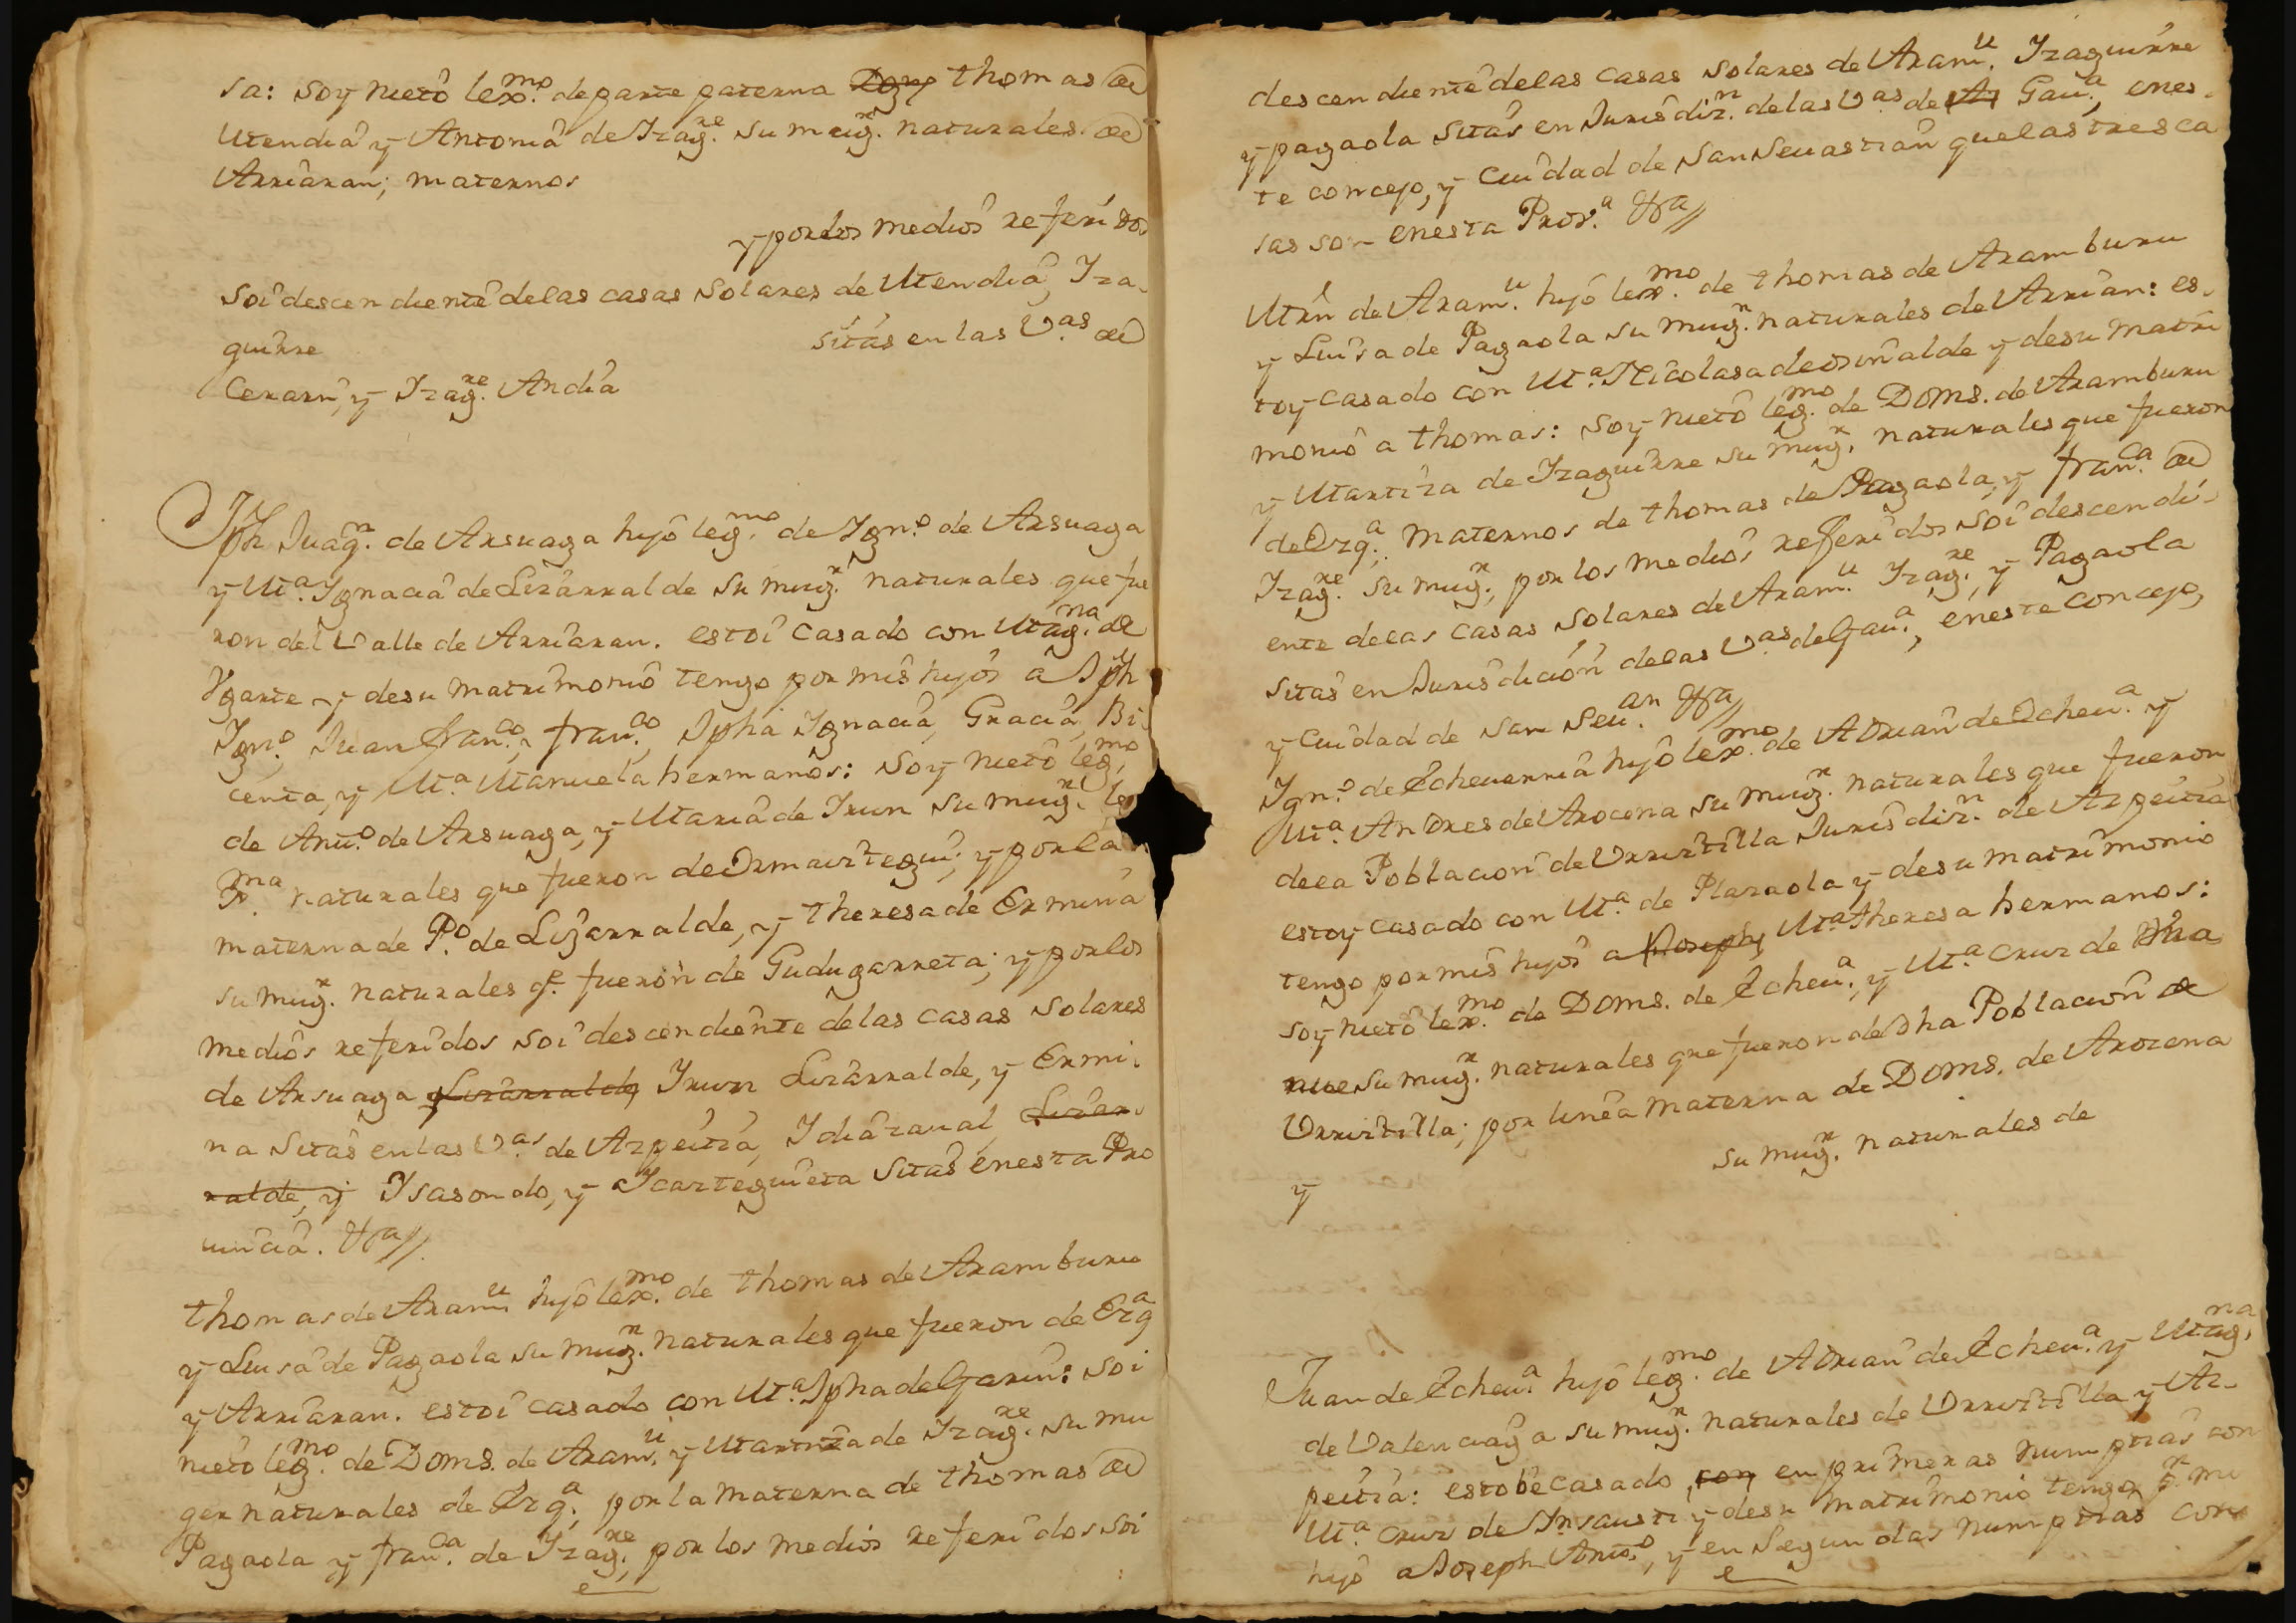 sa: soy nieto lexmo. de parte paterna thomas de
Utendia y Antonia de Izagre. su mugr. naturales de
Arriaran; maternos
y por los medios referidos
soi descendiente de las casas solares de Utendia, Iza-
guirre sitas en las Vas. de
Cerain, y Izagre. Andia
Jph Juaqn. de Arsuaga hijo legmo. de Igno. de Arsuaga
y Ma. Ignacia de Lizarralde su mugr. naturales que fue
ron del Valle de Arriaran. estoi casado con Magna. de
Ygarte y de su matrimonio tengo por mis hijos a Jph
Igno., Juan franco., franco., Jpha Ignacia, Gracia, Bi-
centa, y Ma. Manuela hermanos: soy nieto legmo.
de Anto. de Arsuaga, y Maria de Irun su mugr.
naturales que fueron de Ormaiztegui; y por la
materna de Po. de Lizarralde, y theresa de Ermina
su mugr. naturales qe. fueron de Gudugarreta; y por los
medios referidos soi descendiente de las casas solares
de Arsuaga Lizarralde, Irun Lizarralde, y Ermi-
na sitas en las Vas. de Azpeitia, Idiazaual, Lizar-
ralde, y Isasondo, y Icazteguieta sitas en esta Pro
uincia.
thomas de Aramu. hijo lexmo. de thomas de Aramburu
y Luisa de Pagaola su mugr. naturales que fueron de Ezqa
y Arriaran. estoi casado con Ma. Jpha de Garin: soi
nieto legmo. de Doms. de Aramu. y Martiza de Izagre. su mu
ger naturales de Ezqa., por la materna de thomas de
Pagaola y franca. de Izagre., por los medios referidos soi
descendiente de las casas solares de Aramu. Izaguirre
y pagaola sitas en Jurisdizn. de las Vas de Gaua., en es-
te concejo, y Ciudad de San Seuastian que las tres ca
sas son en esta Prova.
Mrn de Aramu. hijo lexmo. de thomas de Aramburu
y Luisa de Pagaola su mugr. naturales de Arrian: es-
toy casado con Ma. Nicolasa de osinalde y de su matri
monio a thomas: soy nieto legmo. de Doms. de Aramburu
y Martiza de Izaguirre su mugr. naturales que fueron
de Ezqa., maternos de thomas de Pagaola, y franca. de
Izagre. su mugr., por los medios referidos soi descendi-
ente de las casas solares de Aramu. Izagre., y Pagaola
sitas en Jurisdicion de las Vas. de Gaua., en este concejo,
y Ciudad de San Seuan.
Igno. de Echeuerria hijo lexmo. de Adrian de Echeua. y
Ma. Andres de Arocena su mugr. naturales que fueron
de la Poblacion de Vrrestilla Jurisdizn. de Azpeitia
estoy casado con Ma. de Plazaola y de su matrimonio
tengo por mis hijos a Joseph, Ma. theresa hermanos:
soy nieto lexmo. de Doms. de Echeua., y Ma. Cruz de
su mugr. naturales que fueron de dha Poblacion de
Vrrestilla; por linea materna de Doms. de Arozena
y su mugr. naturales de
Juan de Echeua. hijo legmo. de Adrian de Echeua. y Magna.
de Valenciaga su mugr. naturales de Vrrestilla y Az-
peitia: estobe casado, con en primeras numpzias con
Ma. Cruz de Insausti y de su matrimonio tengo pr. mi
hijo a Joseph Anto., y en Segundas numpzias con